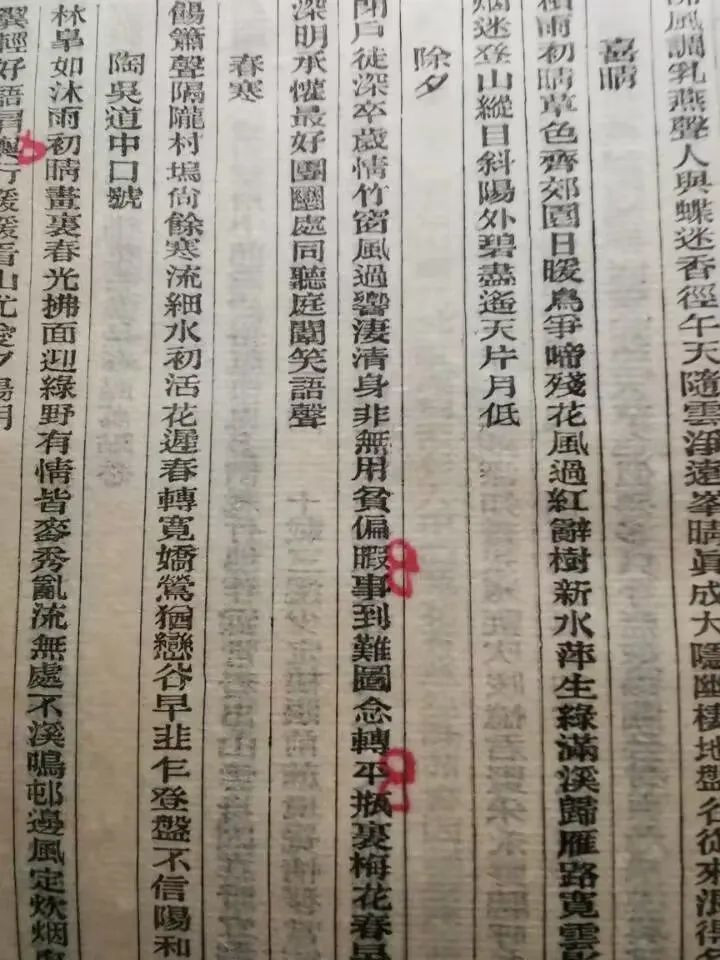 風調乳燕聲人與蝶迷香徑午天隨雲淨遠峯晴眞成大隱幽棲地盤谷從來浪得名
喜晴
積雨初晴草色齊郊園日暖鳥爭啼殘花風過紅辭樹新水萍生綠滿溪歸雁路寬雲影
烟迷登山縱目斜陽外碧盡遙天片月低
除夕
閉戶徒深卒歲情竹窗風過響淒清身非無用貧偏暇事到難圖念轉平瓶裏梅花春
深明承懽最好團圞處同聽庭闈笑語聲
春寒
餳簫聲隔隴村塢尙餘寒流細水初活花遲春轉寬嬌鶯猶戀谷早韭乍登盤不信陽和
陶吳道中口號
林皐如沐雨初晴畫裏春光拂面迎綠野有情皆麥秀亂流無處不溪鳴邨邊風定炊烟
翼輕好語肩輿行緩緩看山尤愛夕陽明